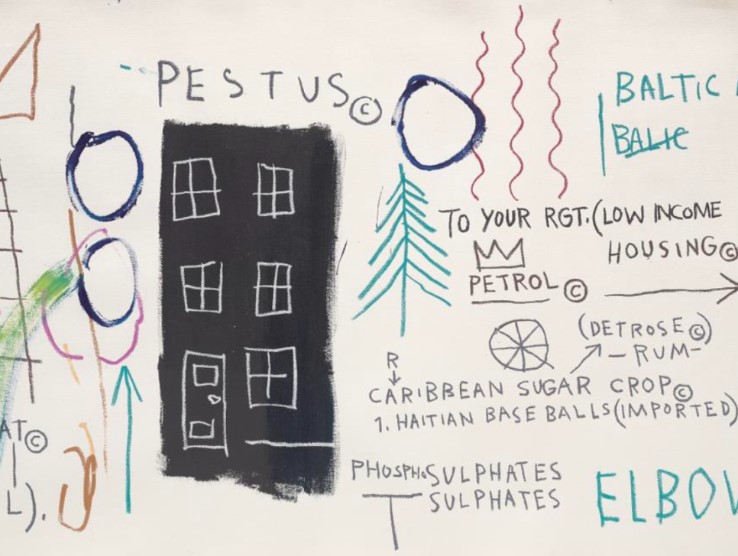 PESTUS©
BALTIC
BALIC
TO YOUR RGT. (LOW INCOME
HOUSING©
PETROL ©
(DETROSE©)
-RUM-
R
CARIBBEAN SUGAR CROP©
1. HAITIAN BASE BALLS (IMPORTED)
AT©
L).
PHOSPHOSULPHATES
SULPHATES
ELBOW